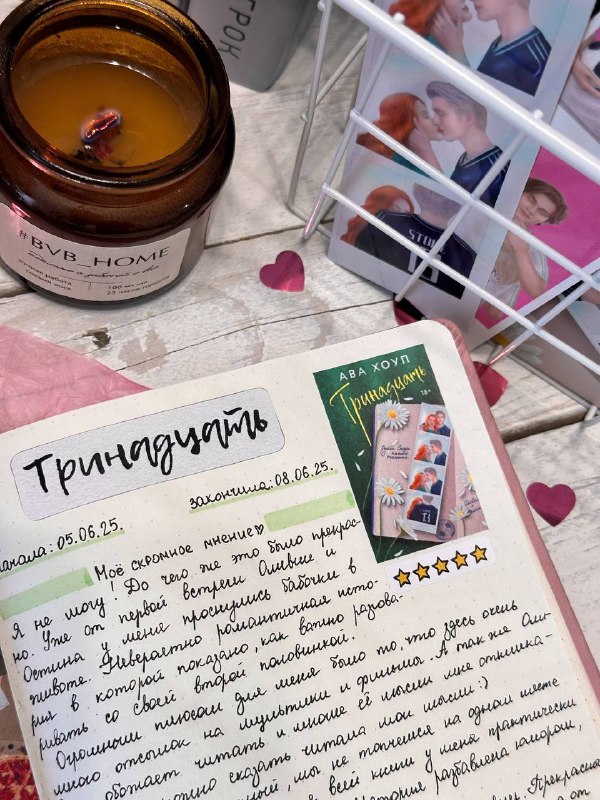 ТРОК
#BVB_HOME
ручная работа
соевый воск
100 мл
25 часов горения
13
АВА ХОУП
Тринадцать
18+
13
Тринадцать
начала: 05.06.25.
закончила: 08.06.25.
Моё скромное мнение♡
Я не могу! До чего же это было прекрас-
но. Уже от первой встречи Оливии и
Остина у меня проснулись бабочки в
животе. Невероятно романтичная исто-
рия в которой показано, как важно разгова-
ривать со своей второй половинкой.
Огромным плюсом для меня было то, что здесь очень
много отсылок на мультики и фильмы. А так же Оли-
обожает читать и многие её мысли мне откликa-
можно сказать читала мои мысли :)
мы не топчемся на одном месте
всей книги у меня практически
история разбавлена юмором,
Прекрасно
от